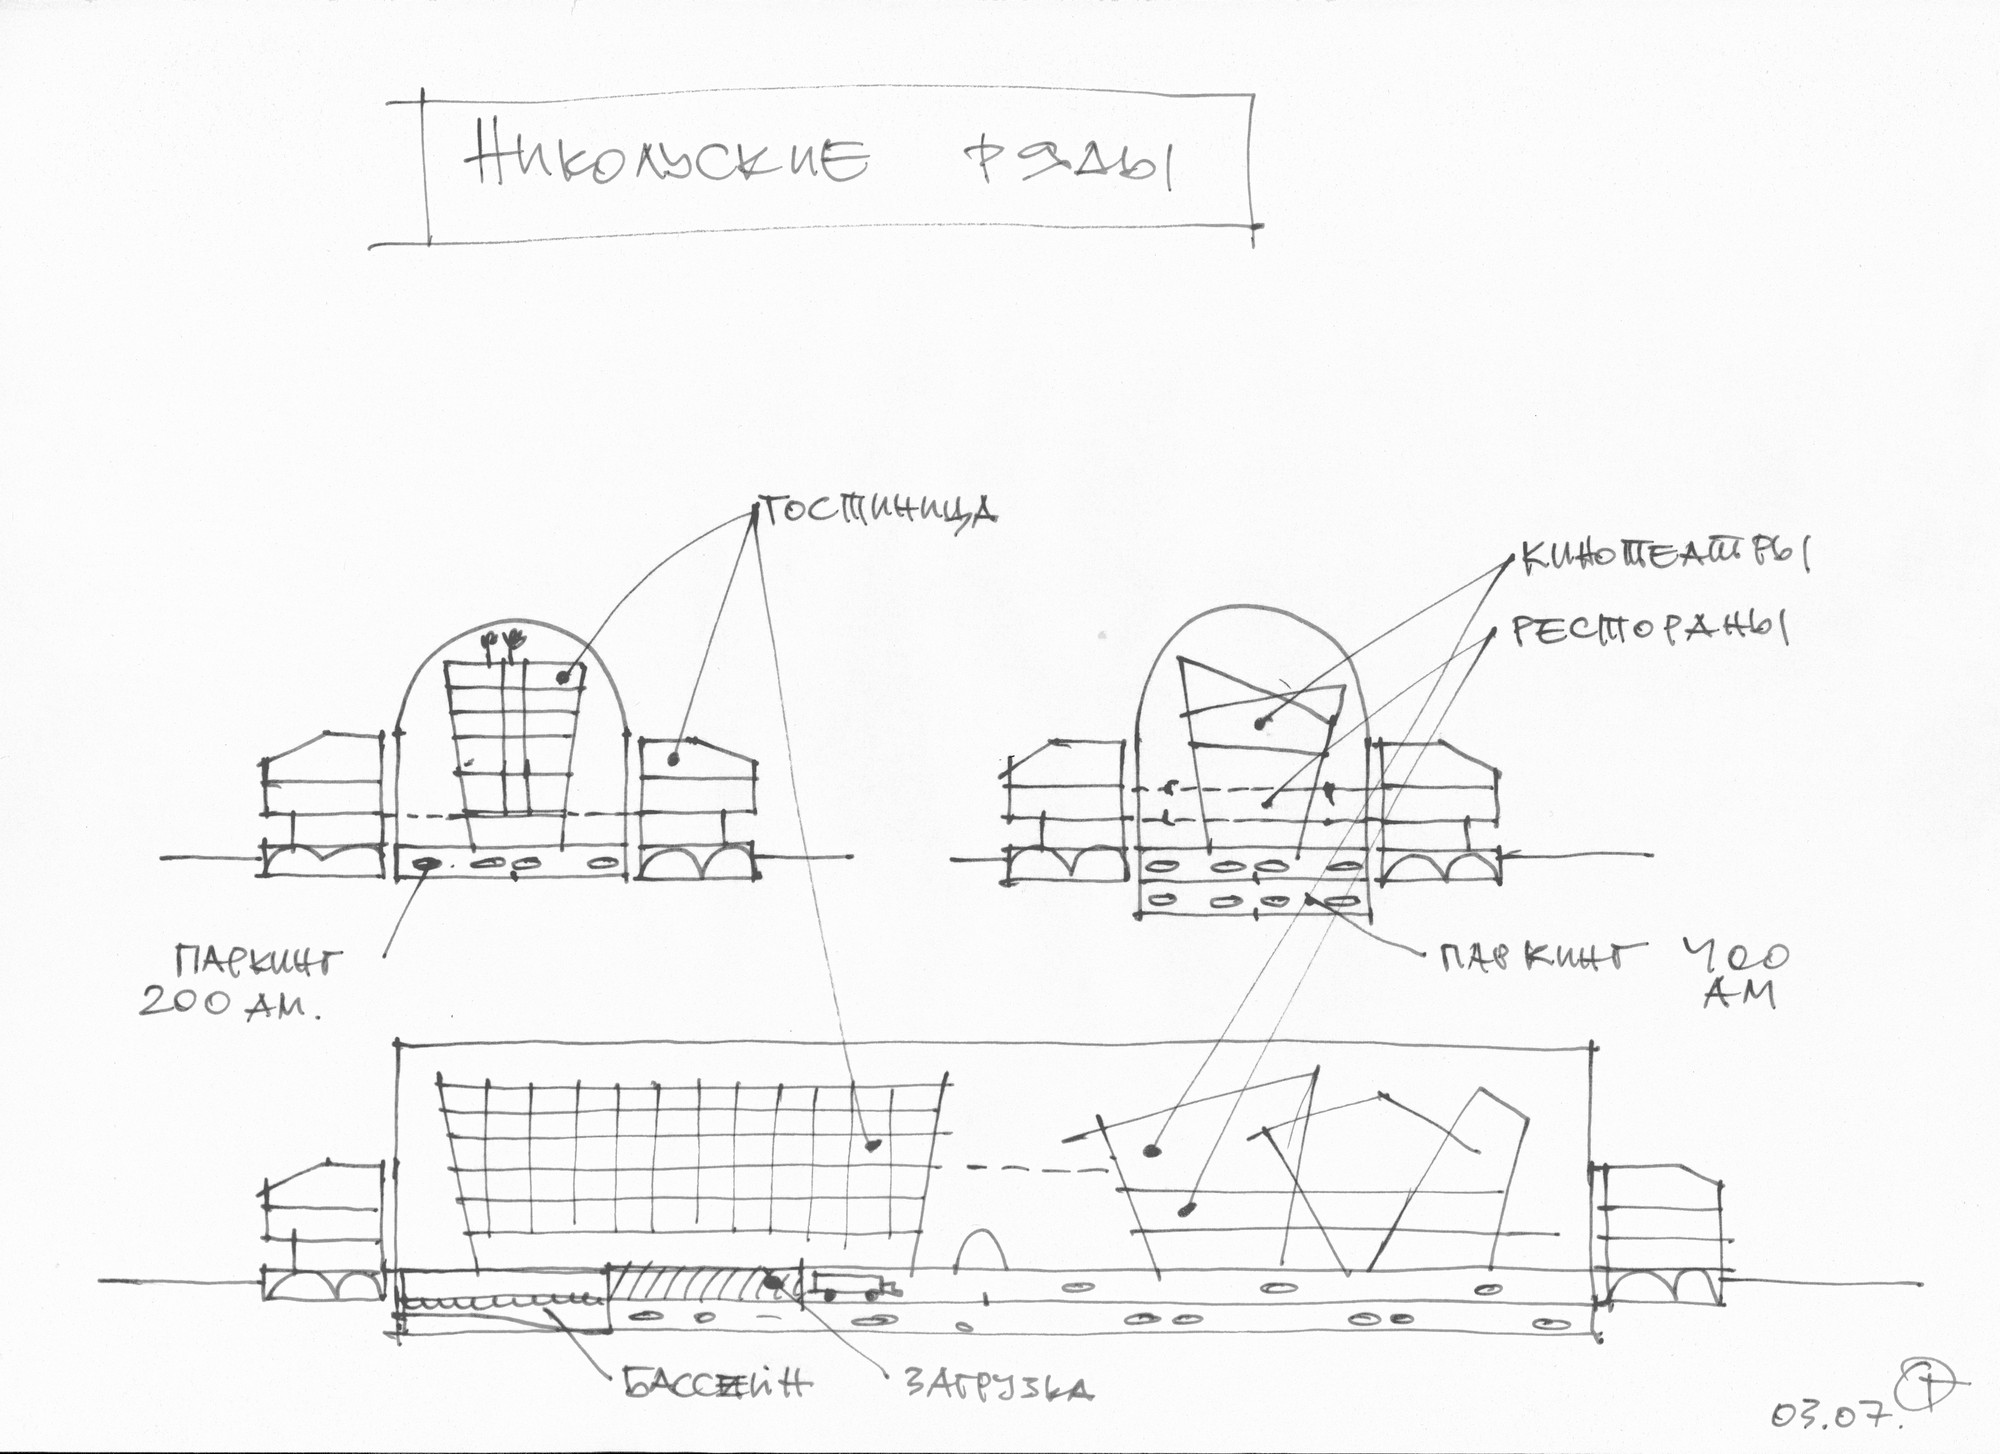 Никольские ряды
гостиница
кинотеатры
рестораны
паркинг
200 ам.
паркинг 400
ам
бассейн
загрузка
03.07.